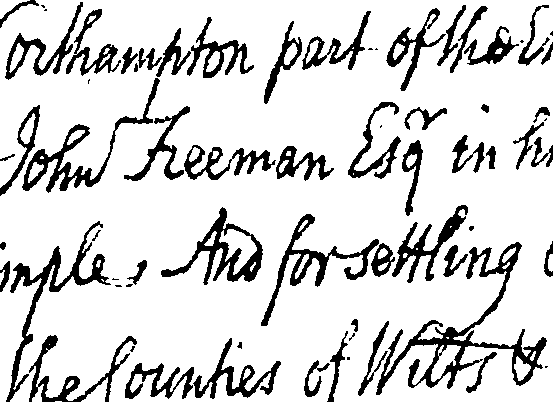 orthampton part of the E
John Freeman Esqr in h
imple And for settling
the Counties of Wilts &